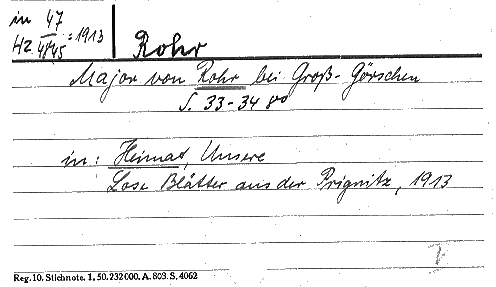 in 47
HZ 48/45 : 1913
Rohr
Major von Rohr bei Groß-Görschen
S. 33-34 80
in: Heimat, Unsere
Lose Blätter aus der Prignitz, 1913
Reg. 10. Stichnote. 1. 50. 232 000. A. 803. S. 4062